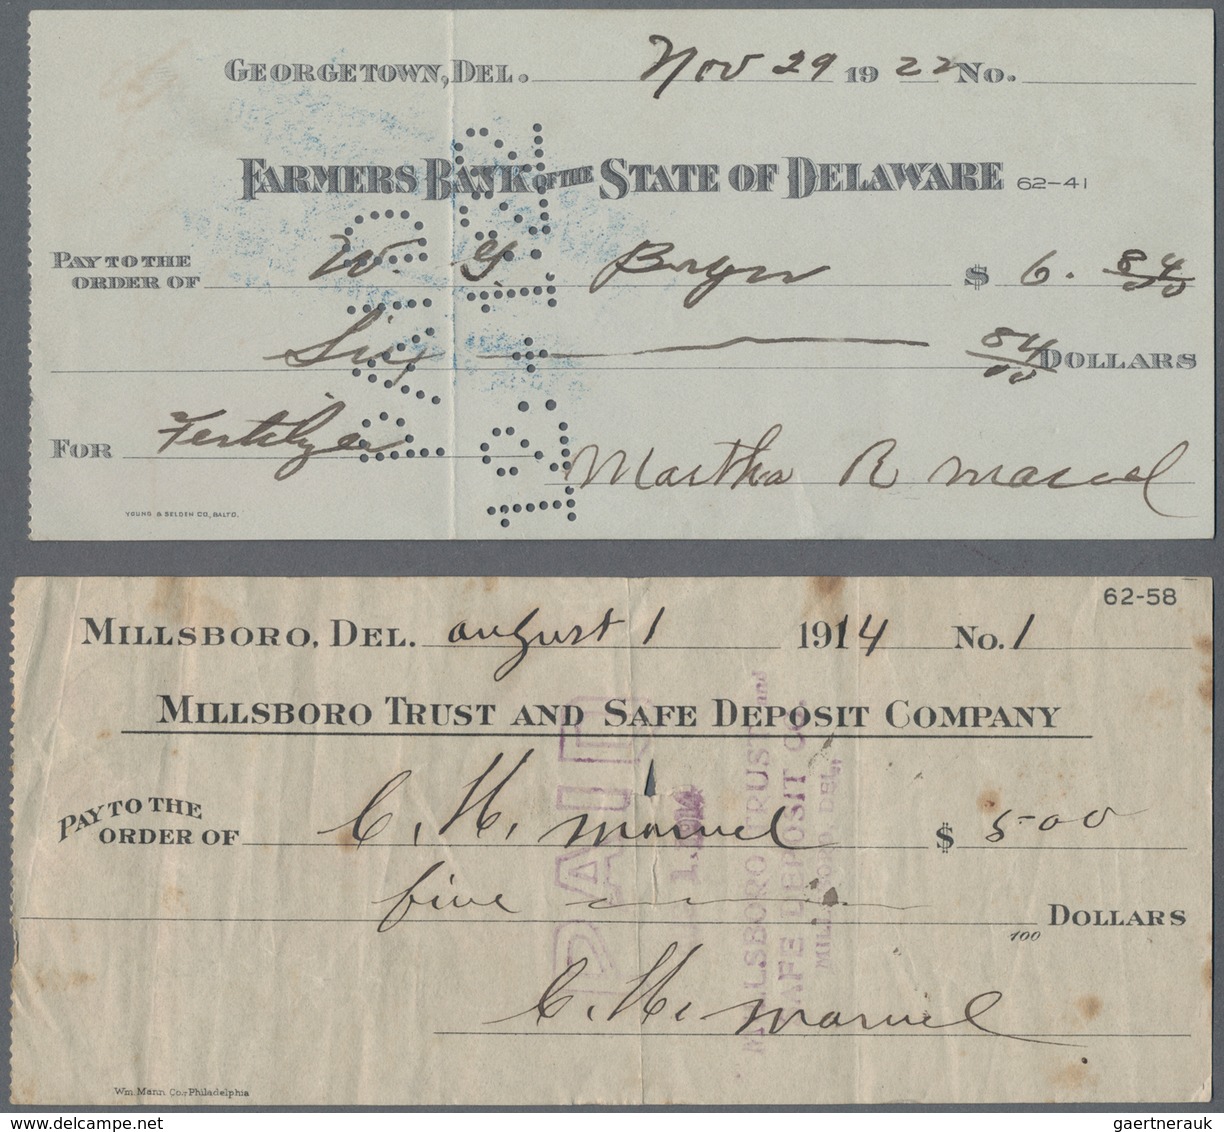 GEORGETOWN, DEL. Nov 29 1922 No.
FARMERS BANK OF THE STATE OF DELAWARE 62-41
PAY TO THE
ORDER OF W. G. $ 6. 84/00
Six 84/00 DOLLARS
FOR Fertilizer
Martha R Marvel
YOUNG & SELDEN CO., BALTO.
PAID
62-58
MILLSBORO, DEL. august 1 1914 No. 1
MILLSBORO TRUST AND SAFE DEPOSIT COMPANY
PAY TO THE
ORDER OF C. H. marvel $ 5-00
five 100 DOLLARS
C. H. marvel
PAID
MILLSBORO TRUST and
SAFE DEPOSIT CO.
Wm. Mann Co., Philadelphia
gaertnerauk